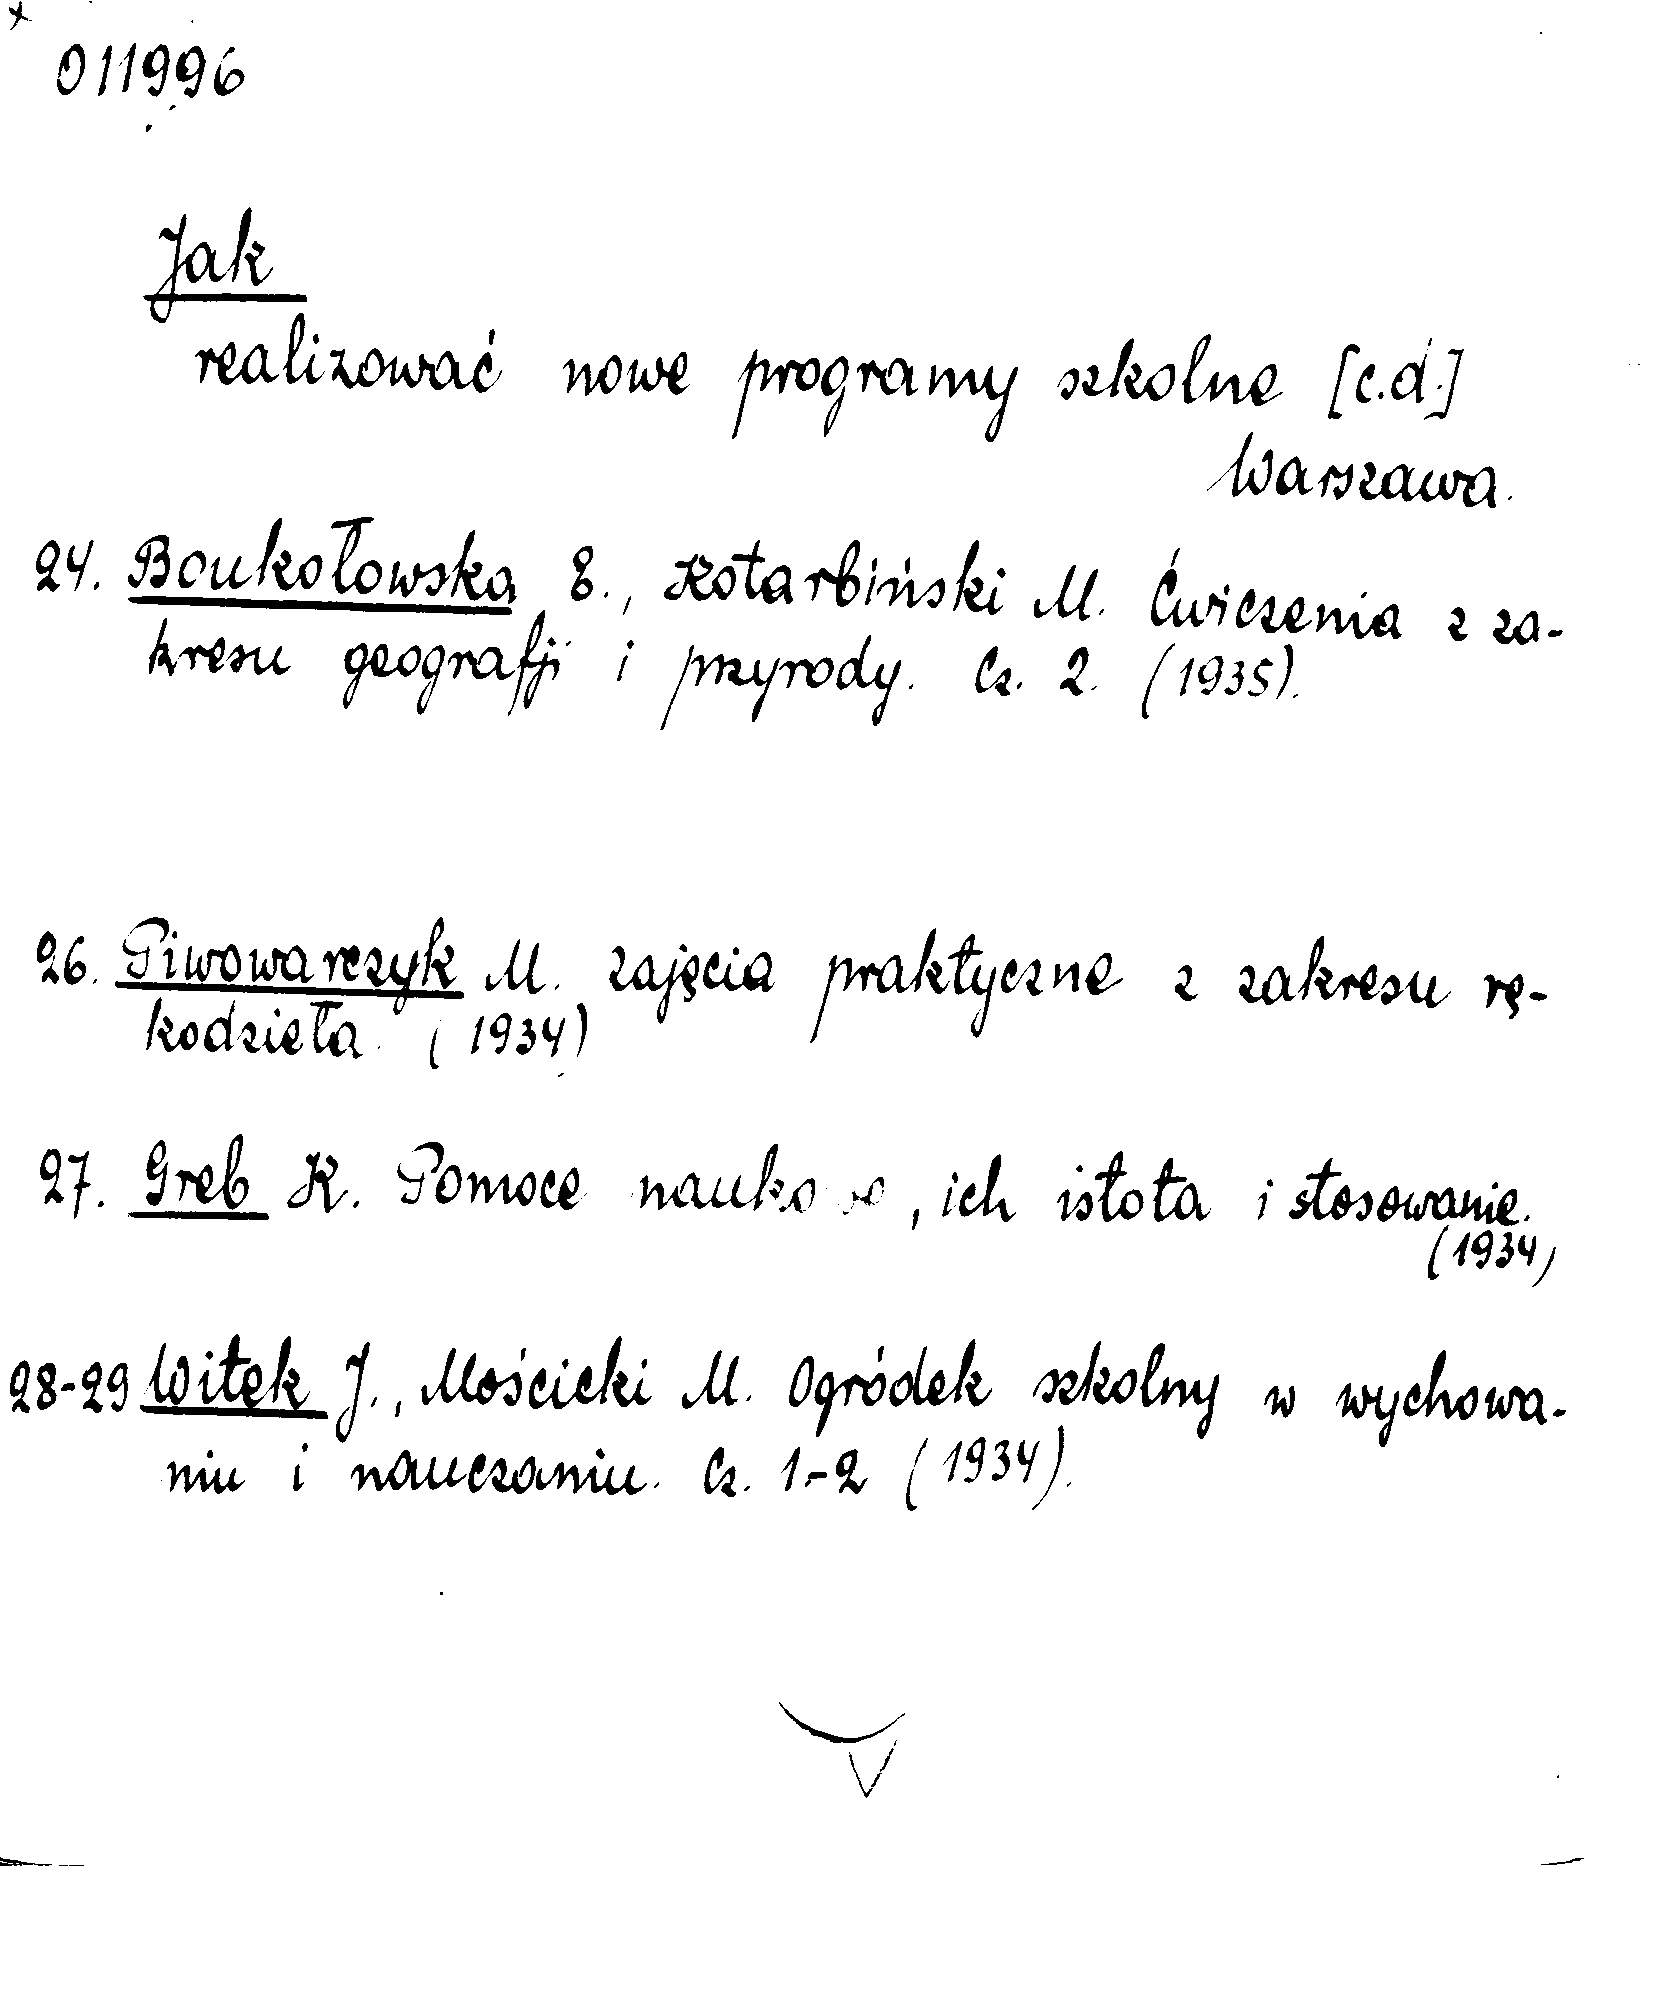 011996
Jak
realizować nowe programy szkolne [c.d.]
Warszawa.
24. Boukołowska E., Kotarbiński M. Ćwiczenia z za-
kresu geografji i przyrody. Cz. 2. (1935).
26. Piwowarczyk M. zajęcia praktyczne z zakresu rę-
kodzieła. (1934)
27. Greb K. Pomoce naukowe, ich istota i stosowanie.
(1934)
28-29 Witek J., Mościcki M. Ogródek szkolny w wychowa-
niu i nauczaniu. Cz. 1-2 (1934).